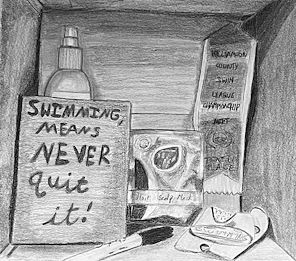 SWIMMING,
MEANS
NEVER
quit
it!
WILLIAMSON
COUNTY
SWIM
LEAGUE
CHAMPIONSHIP
MEET
Hair Scalp Mask